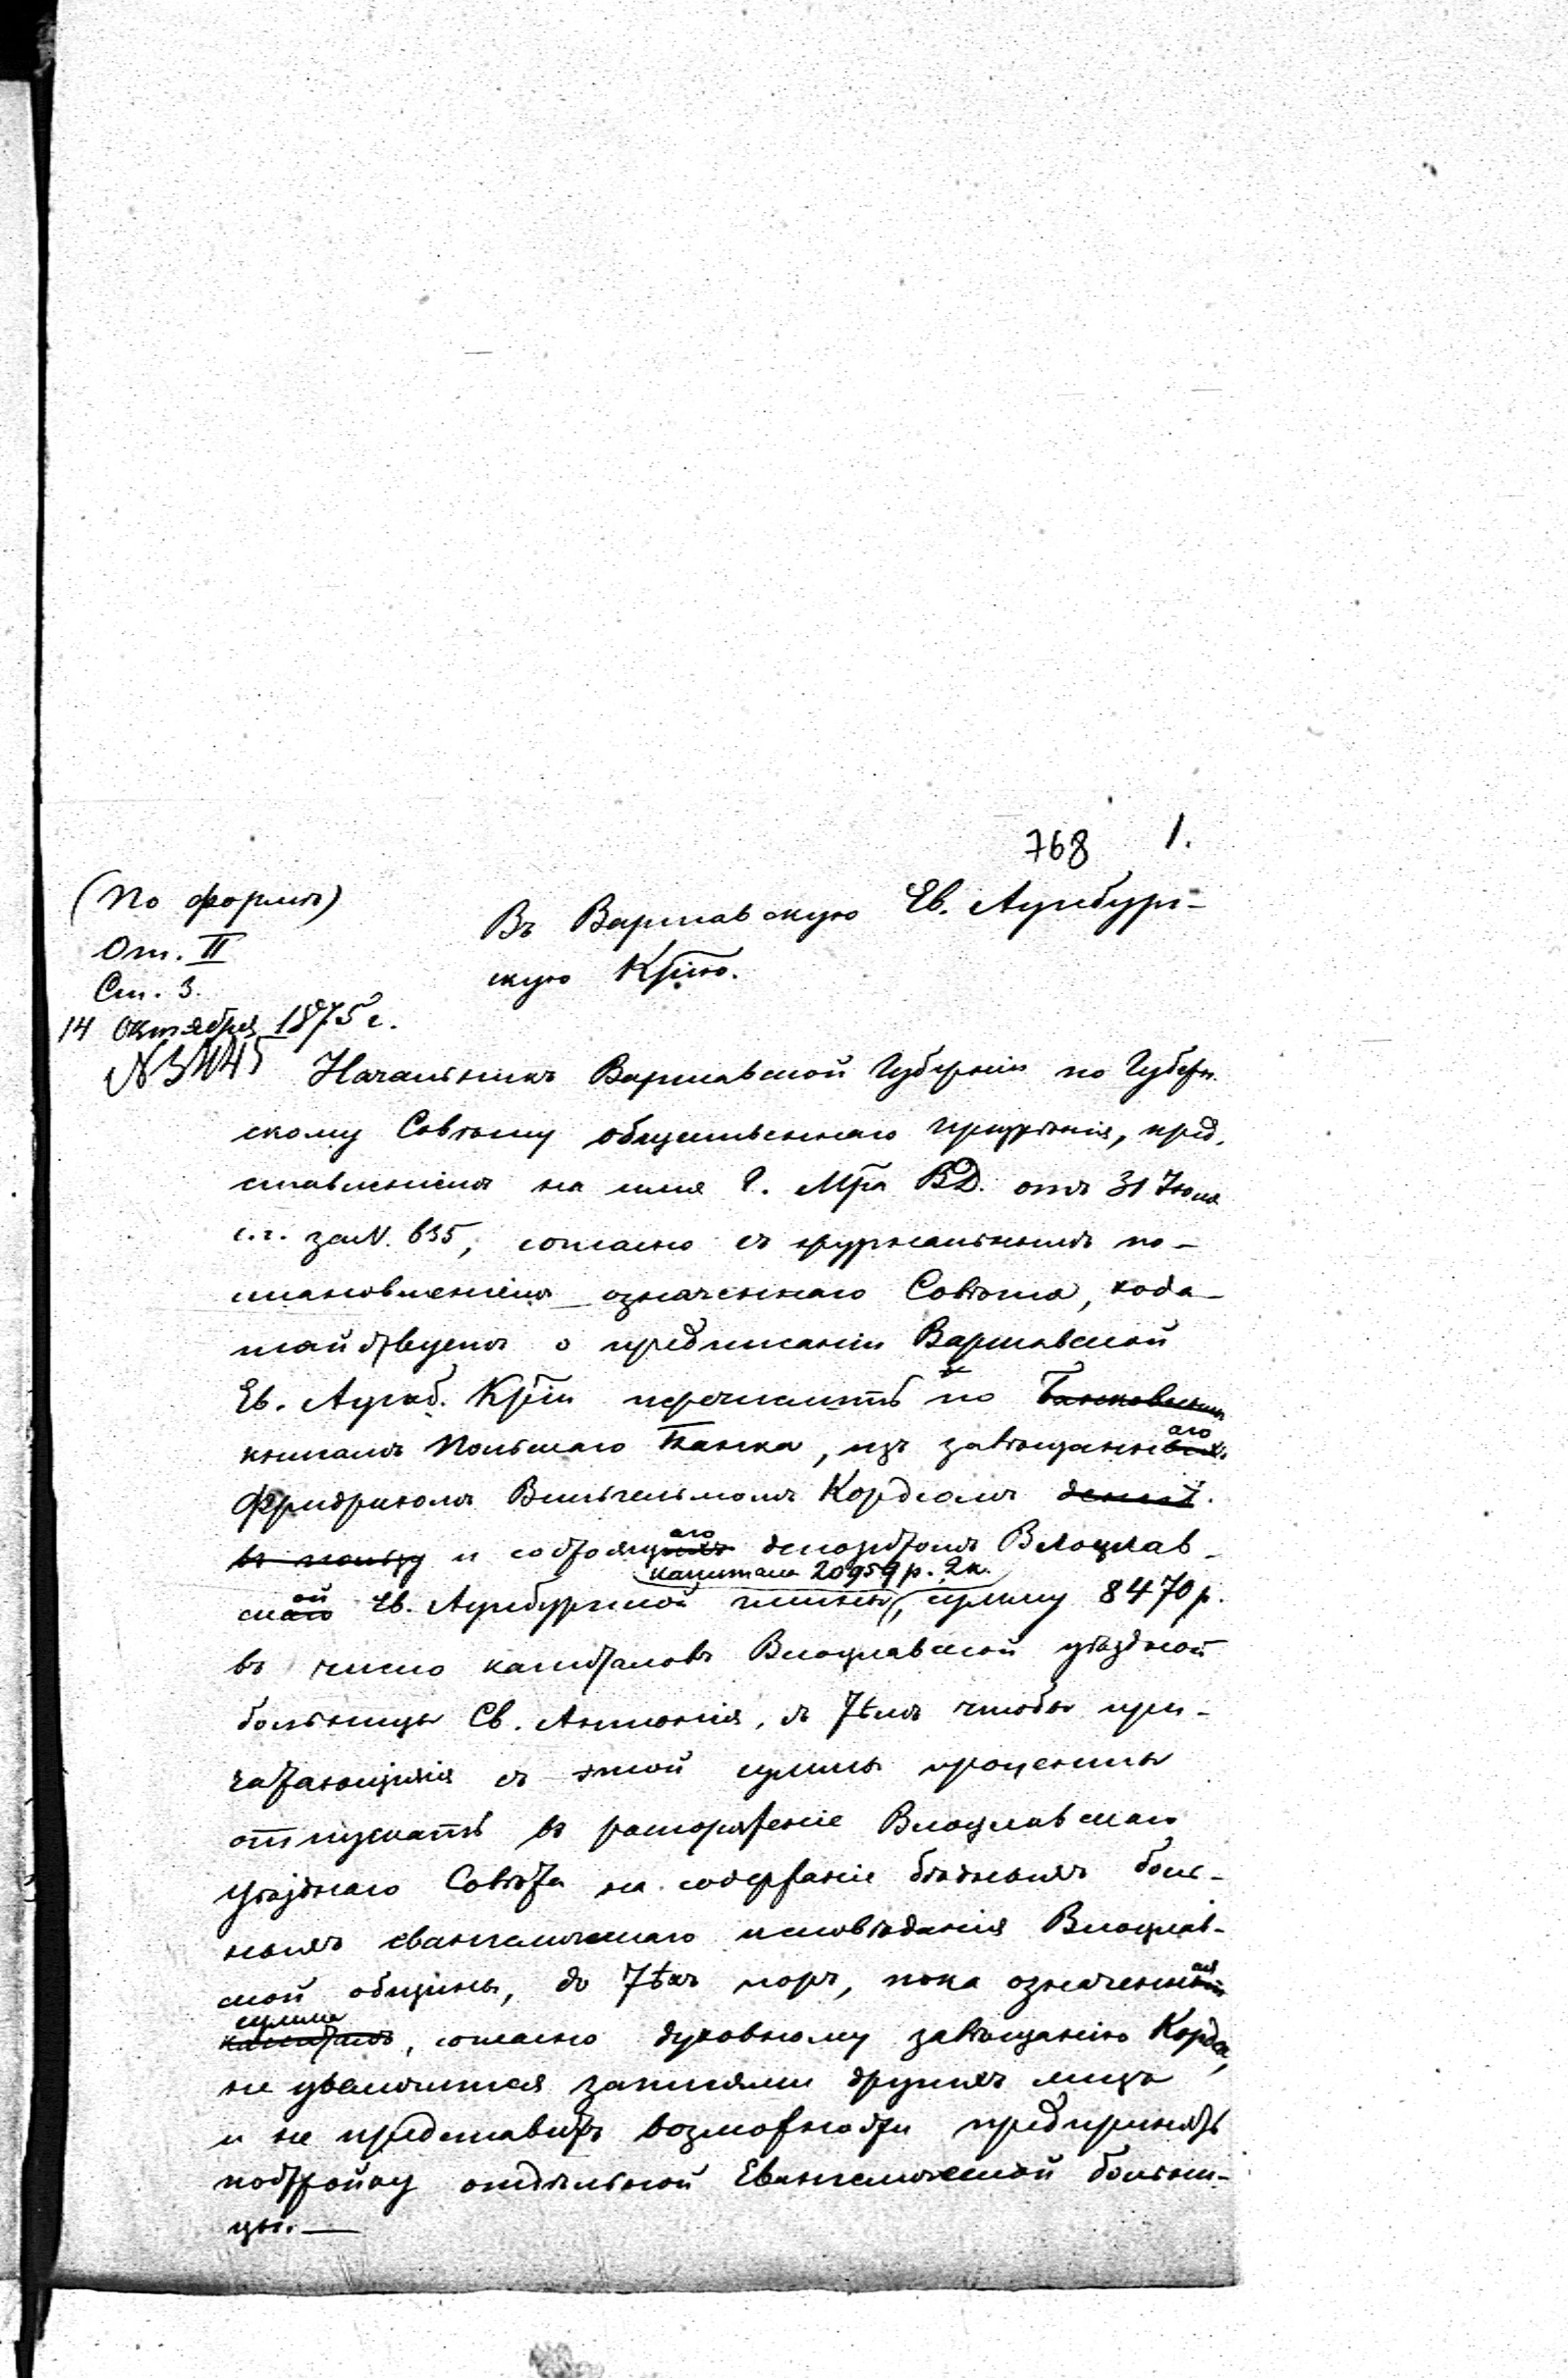 768 1.
(По формѣ)
От. II
Ст. 3.
14 Октября 1875 г.
N 3445
Въ Варшавскую Ев. Аугсбург-
скую Крію.
Начальникъ Варшавской Губерніи по Губерн.
скому Совѣту общественнаго призрѣнія, пред.
ставленіемъ на имя Г. Мра ВД. отъ 31 Іюля
с.г. за N. 635, согласно съ журнальнымъ по-
становленіемъ означеннаго Совѣта, хода-
тайствуетъ о предписаніи Варшавской
Ев. Аугсб. Кріи перечислить по Банковымъ
книгамъ Польскаго Банка, изъ завѣщаннаго
Фридрихомъ Вильгельмомъ Кордомъ денегъ.
въ пользу и состоящаго депозитомъ Влоцлав-
капитала 20959 р. 2 к.
ской Ев. Аугсбургской гмины, сумму 8470 р.
въ число капиталовъ Влоцлавской уѣздной
больницы Св. Антонія, съ тѣмъ чтобы при-
читающіяся съ этой суммы проценты
отпускать въ распоряженіе Влоцлавскаго
Уѣзднаго Совѣта на содержаніе бѣдныхъ боль-
ныхъ евангелическаго исповѣданія Влоцлав-
ской общины, до тѣхъ поръ, пока означенная
сумма
капиталъ, согласно духовному завѣщанію Корда,
не увеличится записями другихъ лицъ
и не представитъ возможности предпринять
постройку отдѣльной Евангелической больни-
цы. —